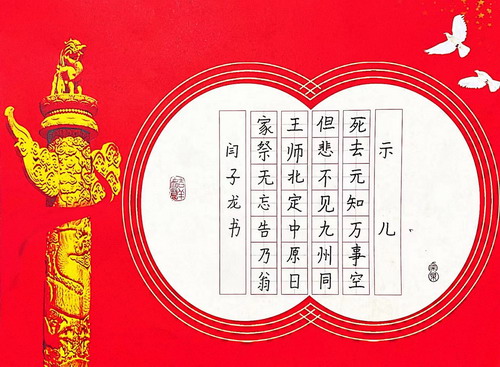 示儿
死去元知万事空
但悲不见九州同
王师北定中原日
家祭无忘告乃翁
闫子龙书